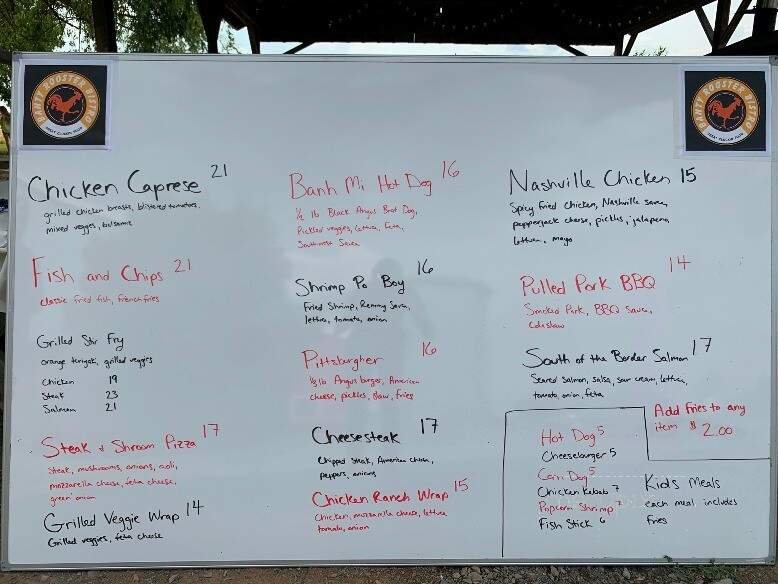 ROOSTER BISTRO
ROOSTER BISTRO
Chicken Caprese 21
grilled chicken breasts, blistered tomatoes,
mixed veggies, balsamic
Fish and Chips 21
classic fried fish, french fries
Grilled Stir Fry
orange teriyaki, grilled veggies
Chicken 19
Steak 23
Salmon 21
Steak & Shroom Pizza 17
Steak, mushrooms, onions, aioli,
mozzarella cheese, feta cheese,
green onion
Grilled Veggie Wrap 14
Grilled veggies, feta cheese
Banh Mi Hot Dog 16
1/2 lb Black Angus Brat Dog,
Pickled veggies, lettuce, Feta,
Southwest Sauce
Shrimp Po Boy 16
Fried Shrimp, Remmy Sauce,
lettuce, tomato, onion
Pittsburgher 16
1/2 lb Angus burger, American
cheese, pickles, slaw, fries
Cheesesteak 17
Chipped Steak, American cheese,
peppers, onions
Chicken Ranch Wrap 15
Chicken, mozzarella cheese, lettuce
tomato, onion
Nashville Chicken 15
Spicy fried chicken, Nashville sauce,
pepperjack cheese, pickles, jalapeno,
lettuce, mayo
Pulled Pork BBQ 14
Smoked Pork, BBQ Sauce,
Coleslaw
South of the Border Salmon 17
Seared salmon, salsa, sour cream, lettuce,
tomato, onion, feta
Add Fries to any
item $2.00
Hot Dog 5
Cheeseburger 5
Corn Dog 5
Chicken Kabob 7
Popcorn Shrimp 7
Fish Stick 6
Kids Meals
each meal includes
fries